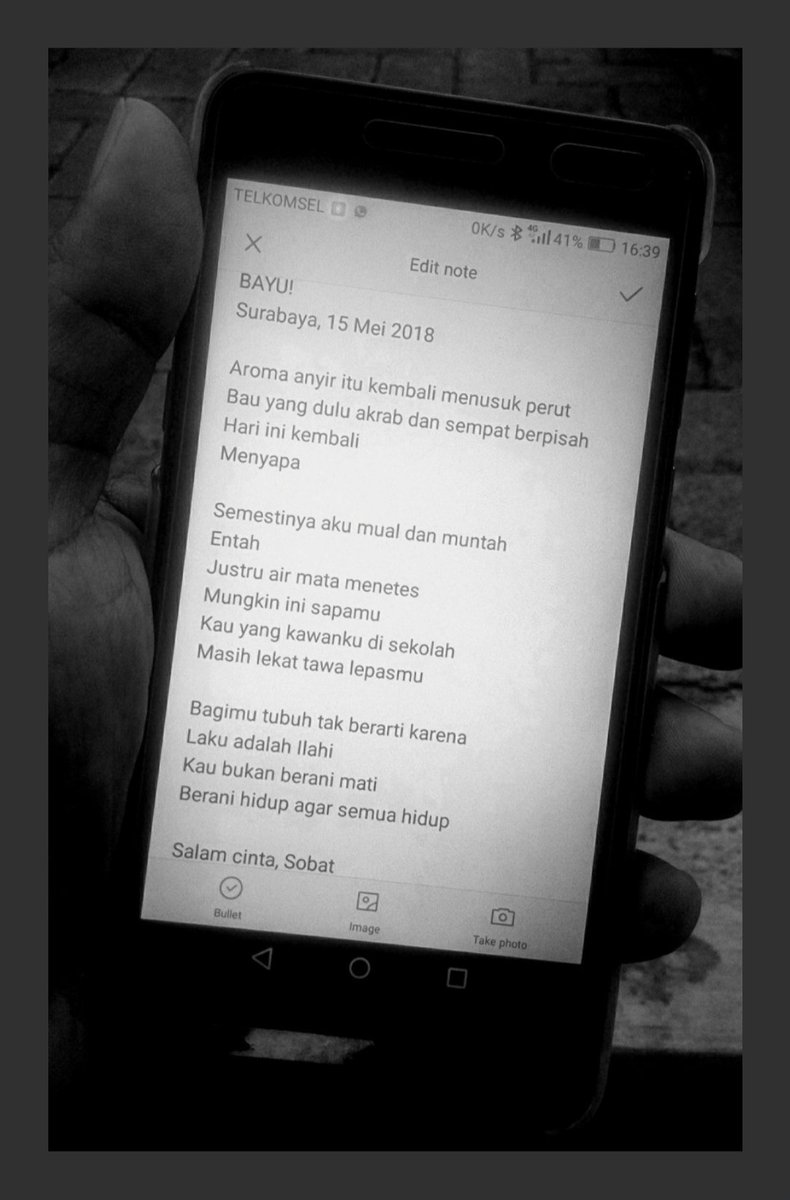 TELKOMSEL
0K/s 4G 41% 16:39
Edit note
BAYU!
Surabaya, 15 Mei 2018
Aroma anyir itu kembali menusuk perut
Bau yang dulu akrab dan sempat berpisah
Hari ini kembali
Menyapa
Semestinya aku mual dan muntah
Entah
Justru air mata menetes
Mungkin ini sapamu
Kau yang kawanku di sekolah
Masih lekat tawa lepasmu
Bagimu tubuh tak berarti karena
Laku adalah Ilahi
Kau bukan berani mati
Berani hidup agar semua hidup
Salam cinta, Sobat
Bullet
Image
Take photo